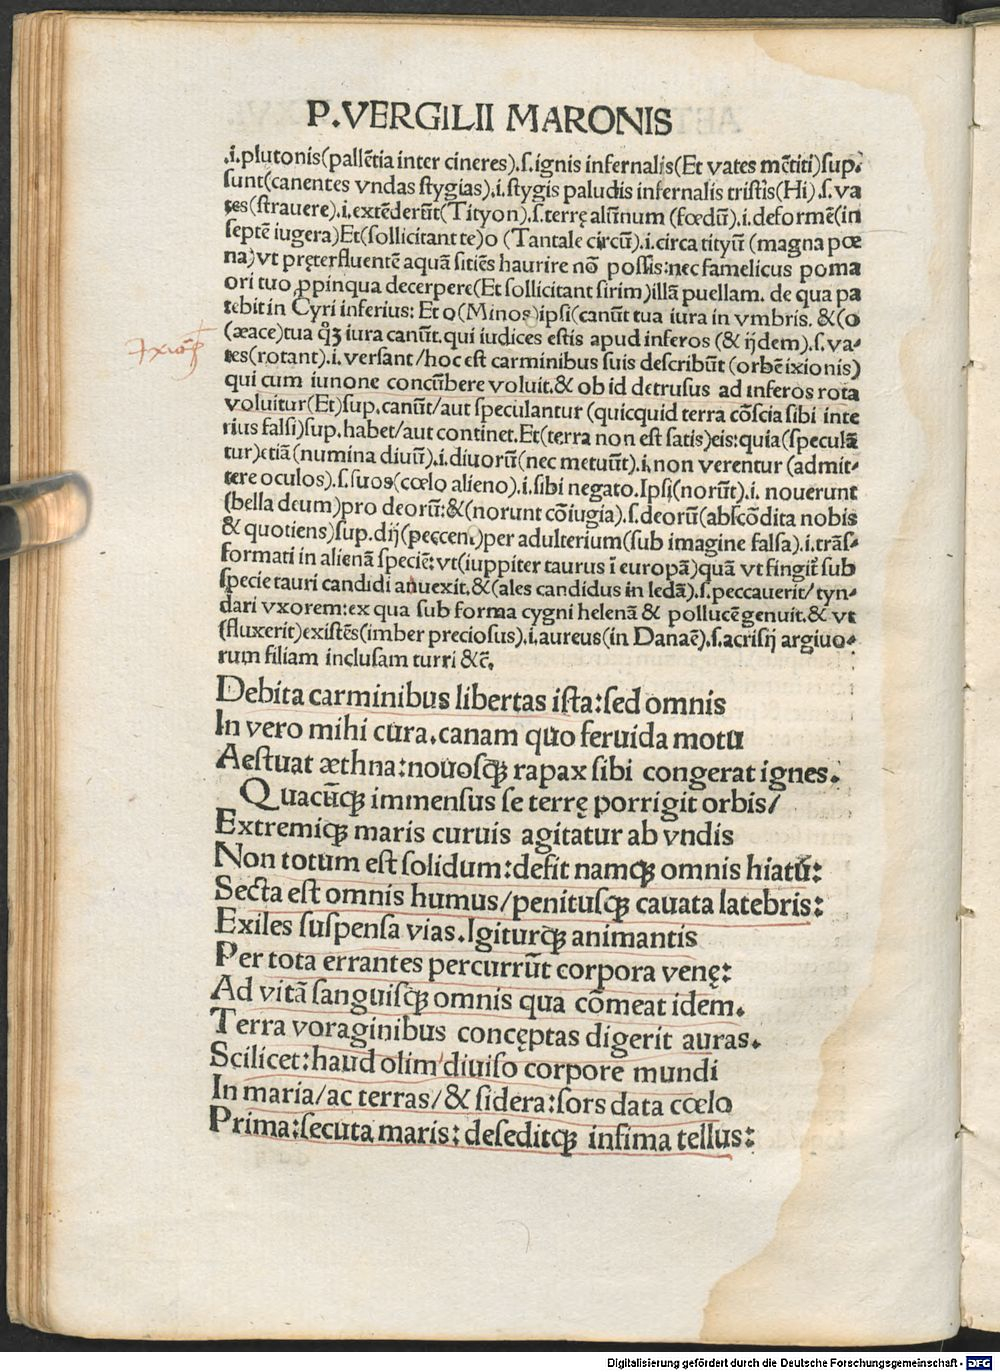 P.VERGILII MARONIS
.i.plutonis(pallētia inter cineres).ſ.ignis infernalis(Et vates mētiti)ſup.
ſunt(canentes vndas ſtygias).i.ſtygis paludis infernalis triſtis(Hi).ſ.va
tes(ſtrauere).i.extēderūt(Tityon).ſ.terrę alūnum (fœdū).i.deformē(in
ſeptē iugera)Et(ſollicitant te)o (Tantale circū).i.circa tityū (magna pœ
na)vt pręterfluentē aquā ſitiēs haurire nō poſſis:nec famelicus poma
ori tuo ꝓpinqua decerpere(Et ſollicitant ſirim)illā puellam. de qua pa
tebit in Cyri inferius: Et o(Minos)ipſi(canūt tua iura in vmbris. &(o
(æace)tua qꝫ iura canūt. qui iudices eſtis apud inferos (& ijdem).ſ.va-
Ixiō
tes(rotant).i. verſant/hoc eſt carminibus ſuis deſcribūt (orbē ixionis)
qui cum iunone concūbere voluit.& ob id detruſus ad inferos rota
voluitur(Et)ſup.canūt/aut ſpeculantur (quicquid terra cōſcia ſibi inte
rius falſi)ſup.habet/aut continet.Et(terra non eſt ſatis)eis:quia(ſpeculā
tur)etiā(numina diuū).i.diuorū(nec metuūt).i.non verentur (admit-
tere oculos).ſ.ſuos(cœlo alieno).i.ſibi negato.Ipſi(norūt).i. nouerunt
(bella deum)pro deorū:&(norunt cōiugia).ſ.deorū(abſcōdita nobis
& quotiens)ſup.dij(peccent)per adulterium(ſub imagine falſa).i.trāſ-
formati in alienā ſpeciē:vt(iuppiter taurus ī europā)quā vt fingit᷑ ſub
ſpecie tauri candidi auuexit.&(ales candidus in ledā).ſ.peccauerit/tyn-
dari vxorem:ex qua ſub forma cygni helenā & pollucē genuit.& vt
(fluxerit)exiſtēs(imber precioſus).i.aureus(in Danaē).ſ.acriſij argiuo-
rum filiam incluſam turri &c̄.
Debita carminibus libertas iſta:ſed omnis
In vero mihi cura.canam quo feruida motu
Aeſtuat æthna:nouoſqꝫ rapax ſibi congerat ignes.
Quacūqꝫ immenſus ſe terrę porrigit orbis/
Extremiqꝫ maris curuis agitatur ab vndis
Non totum eſt ſolidum:deſit namqꝫ omnis hiatū:
Secta eſt omnis humus/penituſqꝫ cauata latebris:
Exiles ſuſpenſa vias.Igiturqꝫ animantis
Per tota errantes percurrūt corpora venę:
Ad vitā ſanguiſqꝫ omnis qua cōmeat idem.
Terra voraginibus concęptas digerit auras.
Scilicet:haud olim diuiſo corpore mundi
In maria/ac terras/& ſidera:ſors data cœlo
Prima:ſecuta maris:deſeditqꝫ infima tellus:
Digitalisierung gefördert durch die Deutsche Forschungsgemeinschaft - DFG